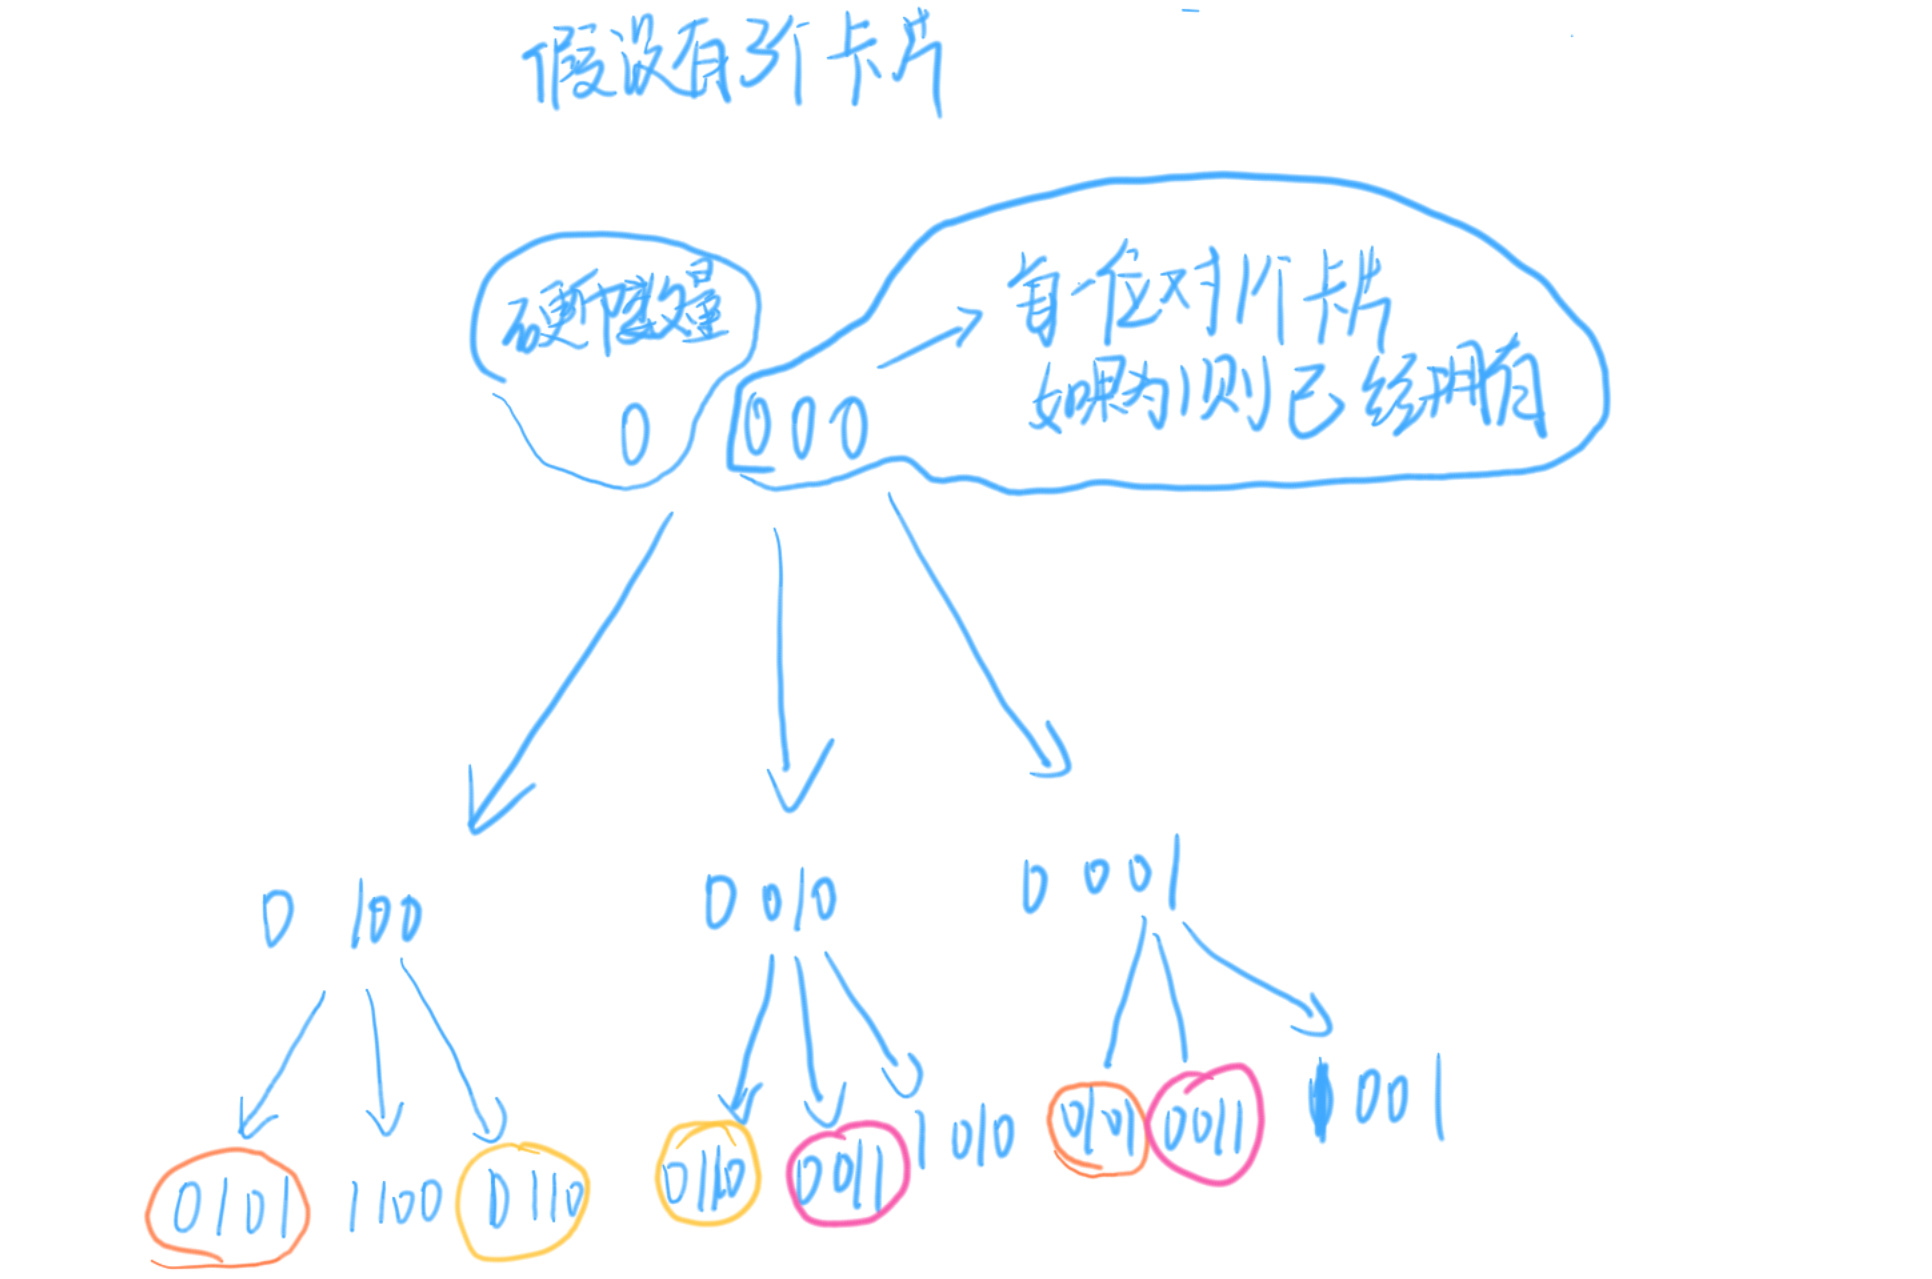 假设有3个卡片
硬币数量
每一位对1个卡片
如果为1则已经拥有
0 000
0 100
0 010
0 001
0101 1100 0110
0110 0011 1010
0101 0011 1001